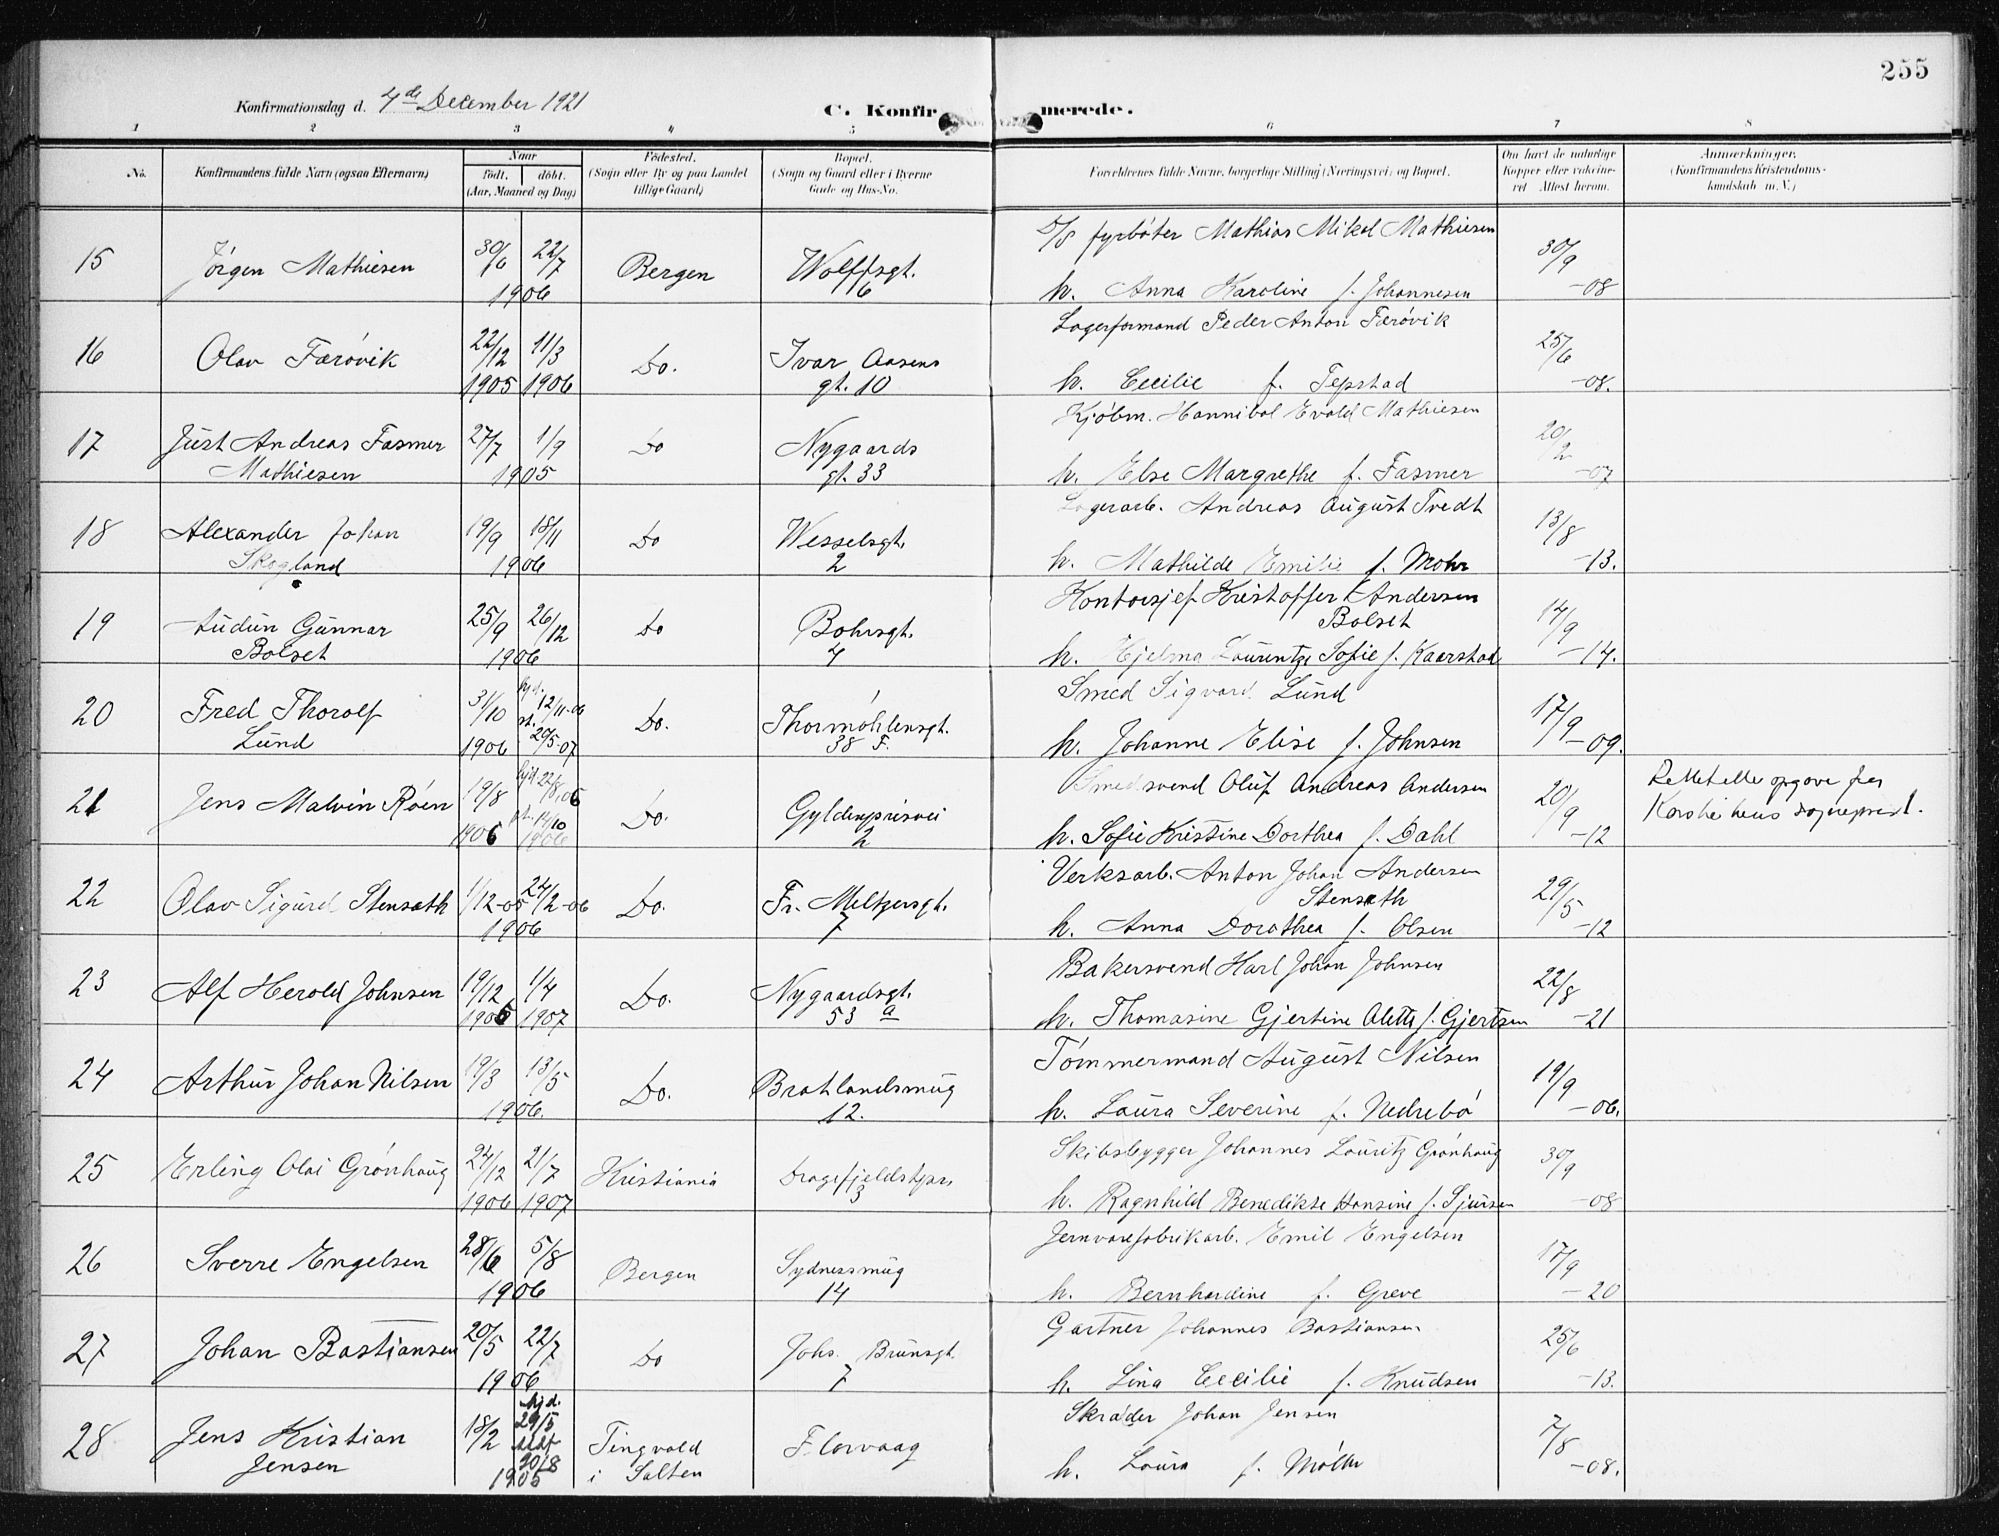 255
Konfirmationsdag d. 4de December 1921
C. Konfirmerede.
1 2 3 4 5 6 7 8
No.
Konfirmandens fulde Navn (ogsaa Efternavn)
Naar
født. døbt.
(Aar, Maaned og Dag)
Fødested.
(Sogn eller By og paa Landet
tillige Gaard)
Bopæl.
(Sogn og Gaard eller i Byerne
Gade og Hus-No.
Forældrenes fulde Navne, borgerlige Stilling (Næringsvei) og Bopæl.
Om havt de naturlige
Kopper eller vakcine-
ret Attest herom.
Anmærkninger.
(Konfirmandens Kristendoms-
kundskab m. V.)
15 Jørgen Mathiesen 30/6 22/7 1906 Bergen Wolffsgt. 6
D/S fyrbøter Mathias Mikal Mathiesen
h. Anna Karoline f. Johannesen 30/9 -08
16 Olav Færøvik 22/12 1905 11/3 1906 Do. Ivar Aasens gt. 10
Lagerformand Peder Anton Færøvik
h. Cecilie f. Tepstad 25/6 -08.
17 Just Andreas Fasmer
Mathiesen 27/7 1/9 1905 Do Nygaards gt. 33
Kjøbm. Hannibal Evald Mathiesen
h. Else Margrethe f. Fasmer 20/2 -07
18 Alexander Johan
Skogland 19/9 18/11 1906 Do Wesselsgt. 2
Lagerarb. Andreas August Tvedt
h. Mathilde Emilie f. Mohr 13/8 -13.
19 Audun Gunnar
Bolset 25/9 26/12 1906 Do Bohrsgt. 4
Kontorsjef Kristoffer Andersen
Bolset
h. Hjelma Laurentze Sofie f. Kaarstad 14/9 -14.
20 Fred Thorolf
Lund 31/10 1906 hjd. 12/11-06 st. 20/5-07 Do. Thormøhlensgt. 38 F.
Smed Sigvard Lund
h. Johanne Elise f. Johnsen 17/9 -09.
21 Jens Malvin Røen 19/8 1906 hjd. 22/8.06 st. 14/10 1906 Do. Gyldenprisvei 2
Smedsvend Oluf Andreas Andersen
h. Sofie Kristine Dorthea f. Dahl 20/9 -12
Rettet efter opgave fra
22 Olav Sigurd Stensæth 1/12-05 24/2-06 1906 Do. Fr. Meltzersgt. 7
Verksarb. Anton Johan Andersen
Stensæth
h. Anna Dorothea f. Olsen 29/5 -12
23 Alf Herold Johnsen 19/12 1906 1/4 1907 Do. Nygaardsgt. 53 a
Bakersvend Karl Johan Johnsen
h. Thomasine Gjertine Aletta f. Gjertsen 22/8 -21
24 Arthur Johan Nilsen 19/3 13/5 1906. Do. Bratlandsmug 12.
Tømmermand August Nilsen
h. Laura Severine f. Nedrebø 19/9 -06.
25 Erling Olai Grønhaug 24/12 1906 21/7 1907 Kristiania Dragefjeldstpr. 3
Skibsbygger Johannes Lauritz Grønhaug
h. Ragnhild Benedikte Hansine f. Sjursen 30/9 -08
26 Sverre Engelsen 28/6 5/8 1906 Bergen Sydnessmug 14
Jernvarefabrikarb. Emil Engelsen
h. Bernhardine f. Greve 17/9 -20
27 Johan Bastiansen 20/5 22/7 1906 Do Johs. Brunsgt. 7
Gartner Johannes Bastiansen
h. Lina Cecilie f. Knudsen 25/6 -13.
28 Jens Kristian
Jensen 18/2 hjd. 29/5 20/8 1905 Tingvold
i Salten Florvaag
Skræder Johan Jensen
h. Laura f. Møller 7/8 -08.